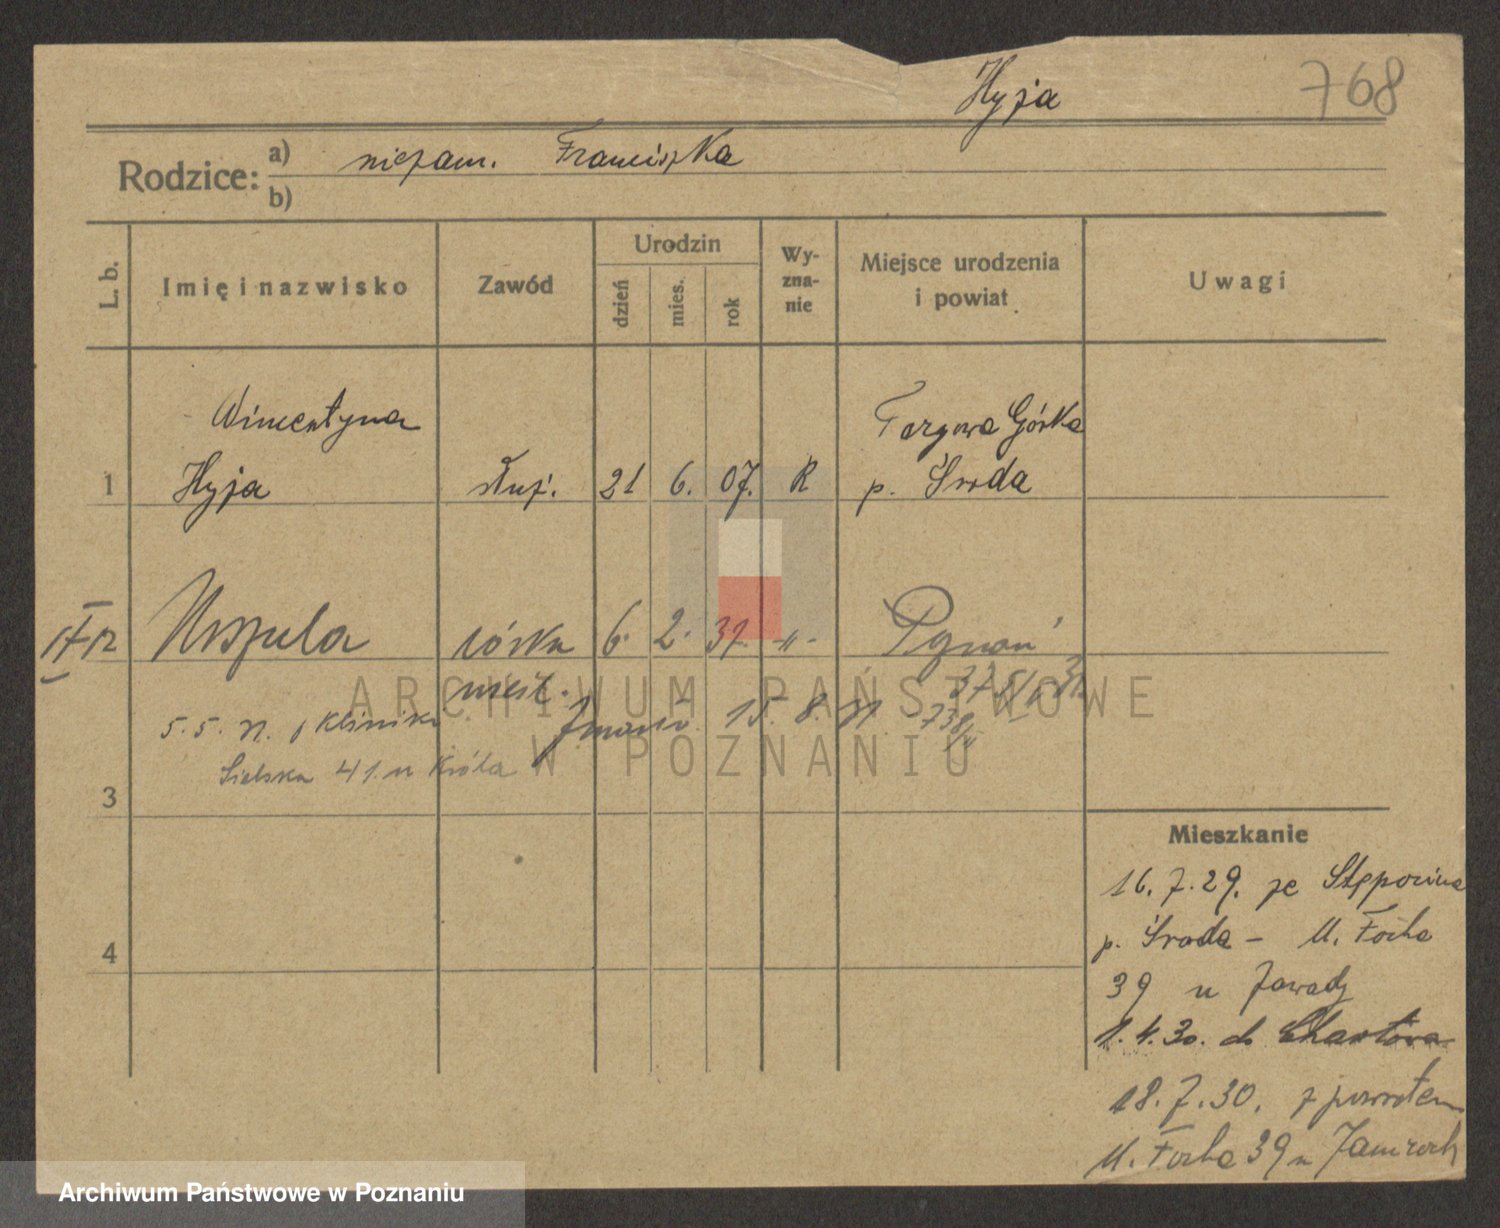 Hyja
768
Rodzice: a) niezam. Franciszka
b)
L. b.
Imię i nazwisko
Zawód
Urodzin
dzień
mies.
rok
Wy-
zna-
nie
Miejsce urodzenia
i powiat
Uwagi
Wincentyna
Targowa Górka
1 Hyja służ. 21 6. 07. R p. Środa
Urszula córka 6. 2. 31. -"- Poznań
nieśl.
5. 5. 31. z kliniki
Zmarła 15. 8. 31.
Sielska 41 u Króla
3
4
Mieszkanie
16. 7. 29. ze
p. Środa - M. Focha
39 u Zawady
1. 4. 30. do Chartowa
18. 7. 30. z powrotem
M. Focha 39 u
ARCHIWUM PAŃSTWOWE
W POZNANIU
Archiwum Państwowe w Poznaniu